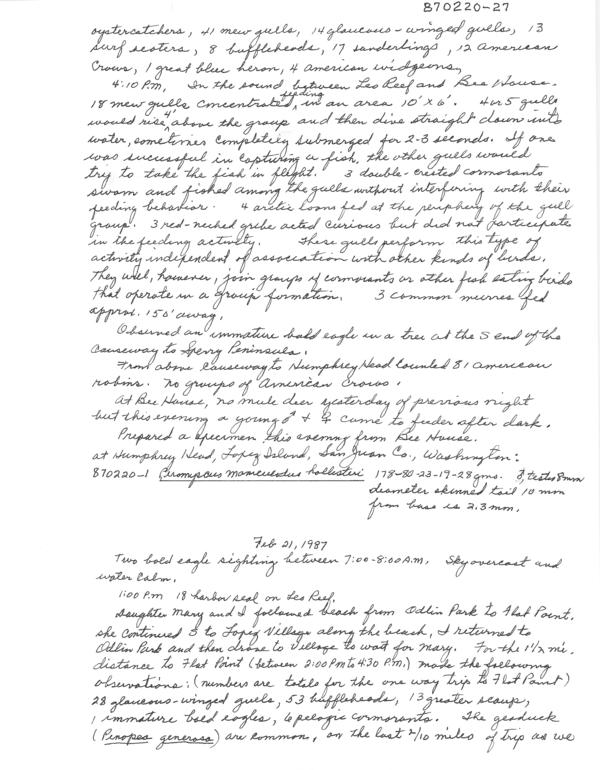 870220-27
oystercatchers, 41 mew gulls, 14 glaucous-winged gulls, 13
surf scoters, 8 buffleheads, 17 sanderlings, 12 American
Crows, 1 great blue heron, 4 American widgeons,
4:10 P.M. In the sound between Leo Reef and Bee House.
18 mew gulls concentrated feeding in an area 10' x 6'. 4 or 5 gulls
would rise 4' above the group and then dive straight down into
water, sometimes completely submerged for 2-3 seconds. If one
was successful in capturing a fish, the other gulls would
try to take the fish in flight. 3 double-crested cormorants
swam and fished among the gulls without interfering with their
feeding behavior. 4 arctic loons fed at the periphery of the gull
group. 3 red-necked grebe acted curious but did not participate
in the feeding activity. These gulls perform this type of
activity independent of association with other kinds of birds.
They will, however, join groups of cormorants or other fish eating birds
that operate in a group formation. 3 common murres fed
approx. 150' away.
Observed an immature bald eagle in a tree at the S end of the
causeway to Sperry Peninsula.
From above causeway to Humphrey Head counted 81 American
robins. No groups of American Crows.
At Bee House, no mule deer yesterday or previous night
but this evening a young ♂ + ♀ came to feeder after dark.
Prepared a specimen this evening from Bee House.
at Humphrey Head, Lopez Island, San Juan Co., Washington:
870220-1 Peromyscus maniculatus hollisteri 178-80-23-19-28 gms. ♂, testes 8mm
diameter skinned tail 10 mm
from base is 2.3 mm.
Feb 21, 1987
Two bald eagle sighting between 7:00-8:00 A.M. Sky overcast and
water calm.
1:00 P.M 18 harbor seal on Leo Reef.
Daughter Mary and I followed beach from Odlin Park to Flat Point.
she continued S to Lopez Village along the beach, I returned to
Odlin Park and then drove to Village to wait for Mary. For the 1½ mi.
distance to Flat Point (between 2:00 PM to 4:30 P.M.) made the following
observations: (numbers are totals for the one way trip to Flat Point)
28 glaucous-winged gulls, 53 buffleheads, 13 greater scaup,
1 immature bald eagles, 6 pelagic cormorants. The geoduck
(Panopea generosa) are common, on the last 2/10 miles of trip as we